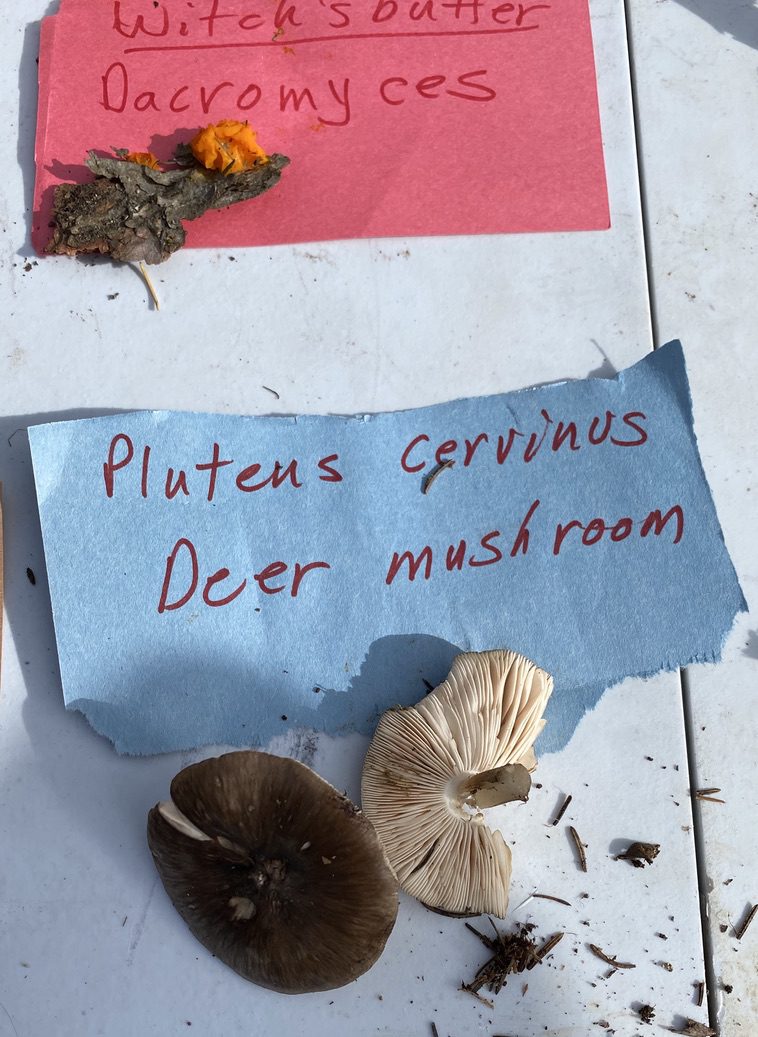 Witch's butter
Dacromyces
Pluteus cervinus
Deer mushroom